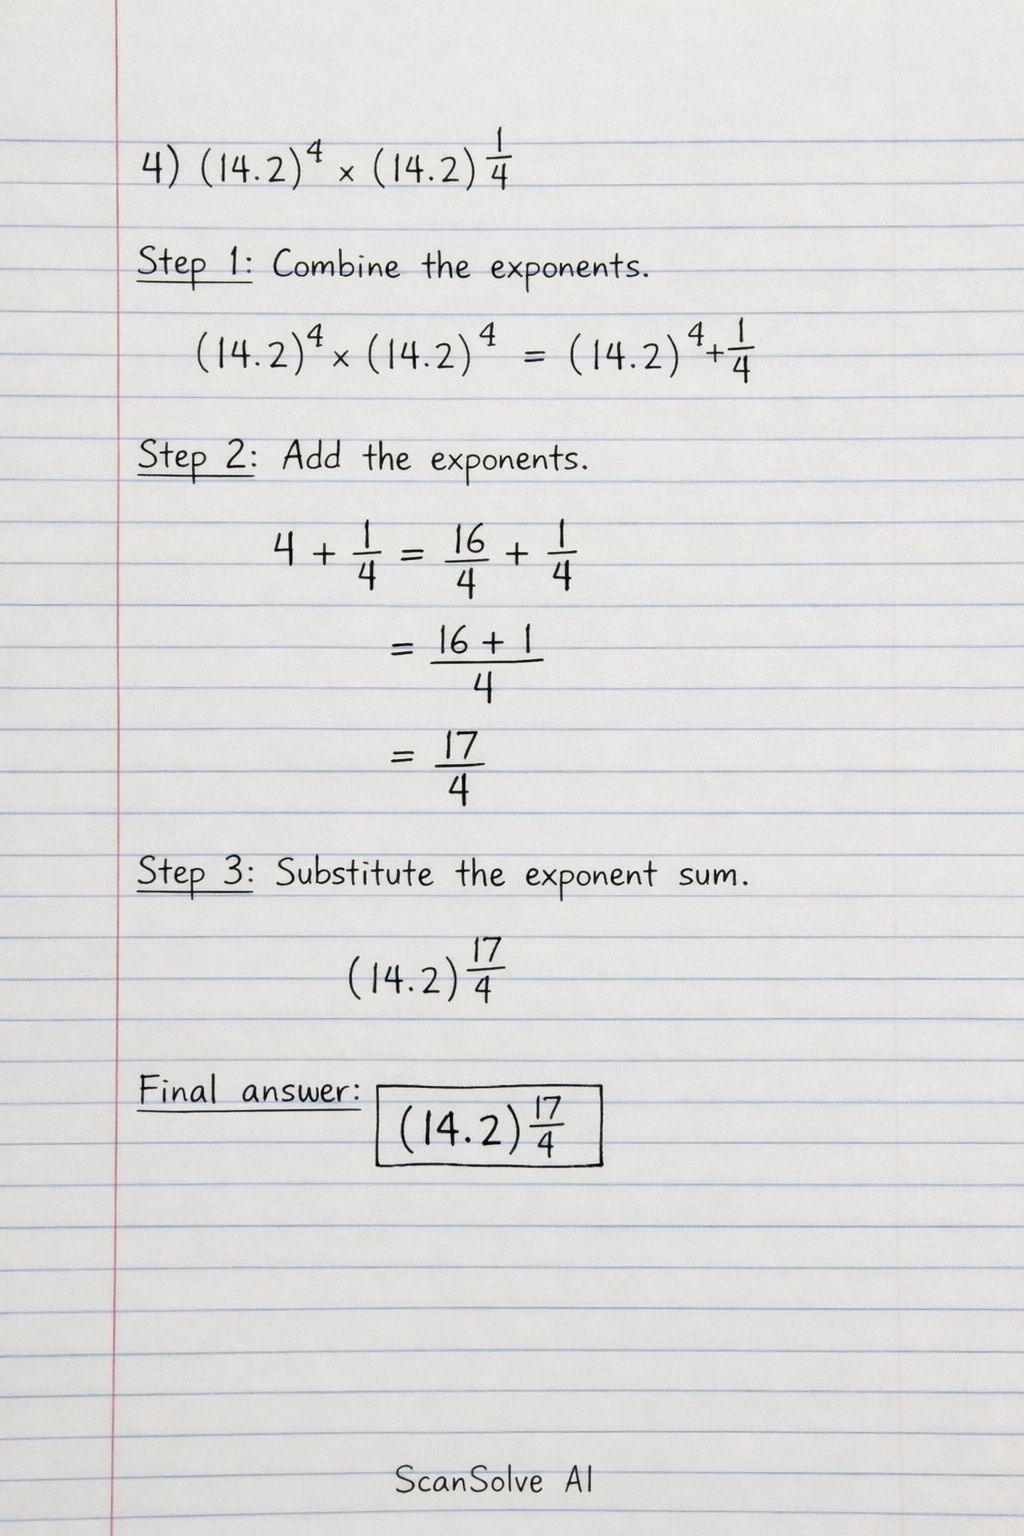 4) (14.2)⁴ × (14.2)^(1/4)
Step 1: Combine the exponents.
(14.2)⁴ × (14.2)⁴ = (14.2)⁴ + 1/4
Step 2: Add the exponents.
4 + 1/4 = 16/4 + 1/4
= (16 + 1)/4
= 17/4
Step 3: Substitute the exponent sum.
(14.2)^(17/4)
Final answer: (14.2)^(17/4)
ScanSolve AI